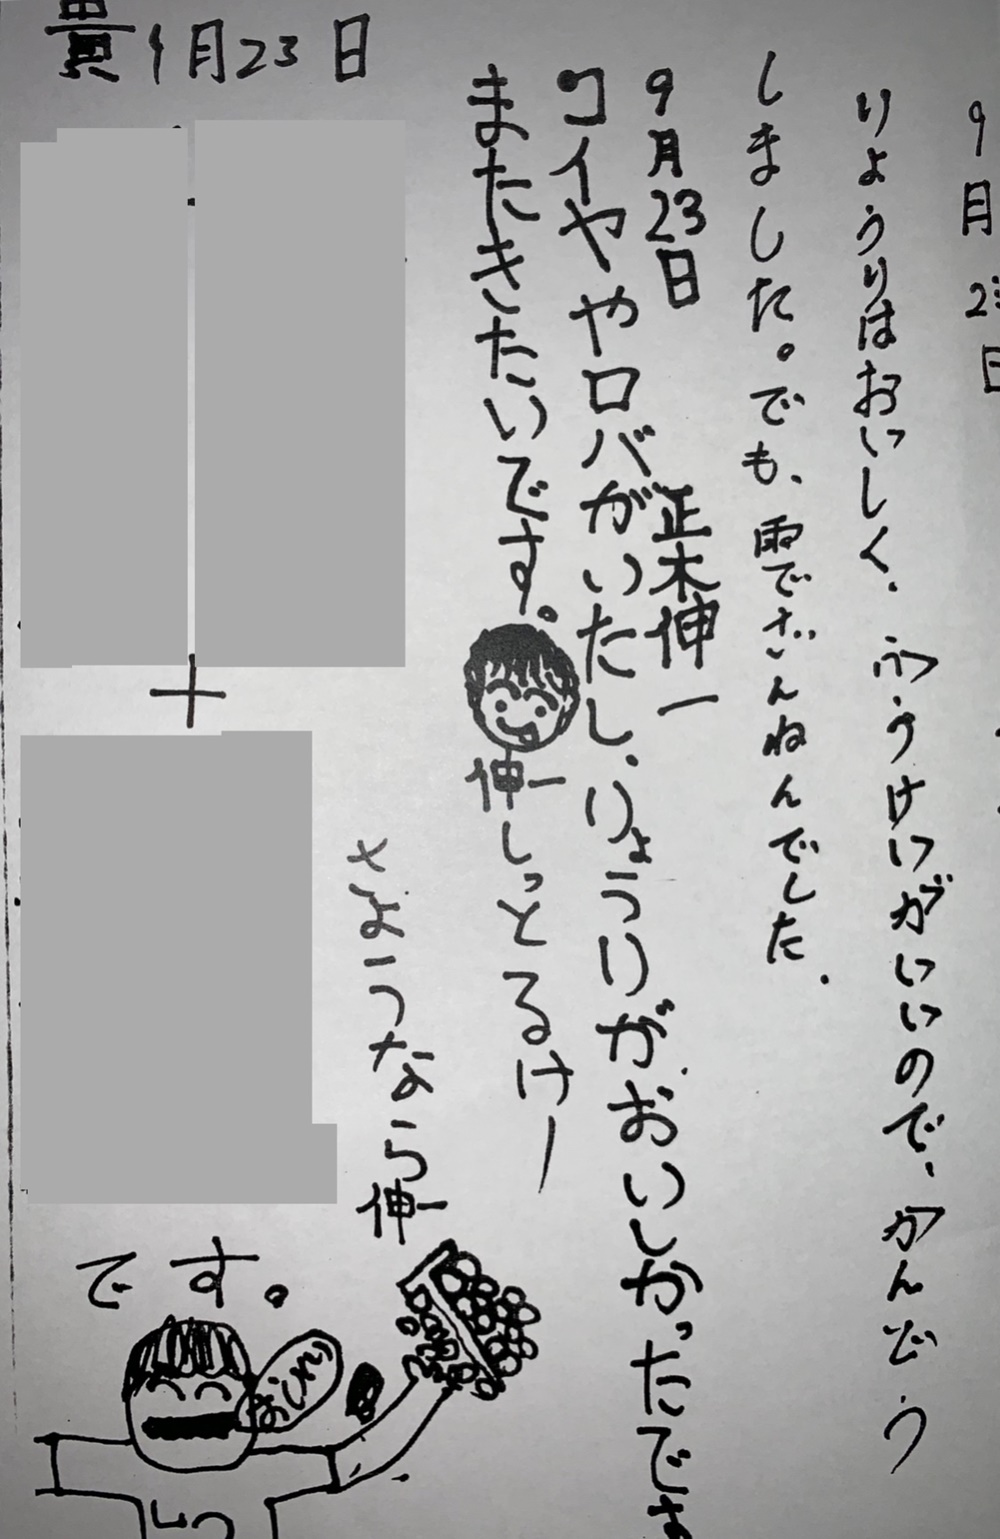 9月23日
りょうりはおいしく、ふうけいがいいので、かんどう
しました。でも、雨でざんねんでした.
9月23日 正木伸一
コイややロバがいたし、りょうりがおいしかったです
またきたいです。
伸一しっとるけー
さようなら伸一
貴9月23日
十
です。
おいしい